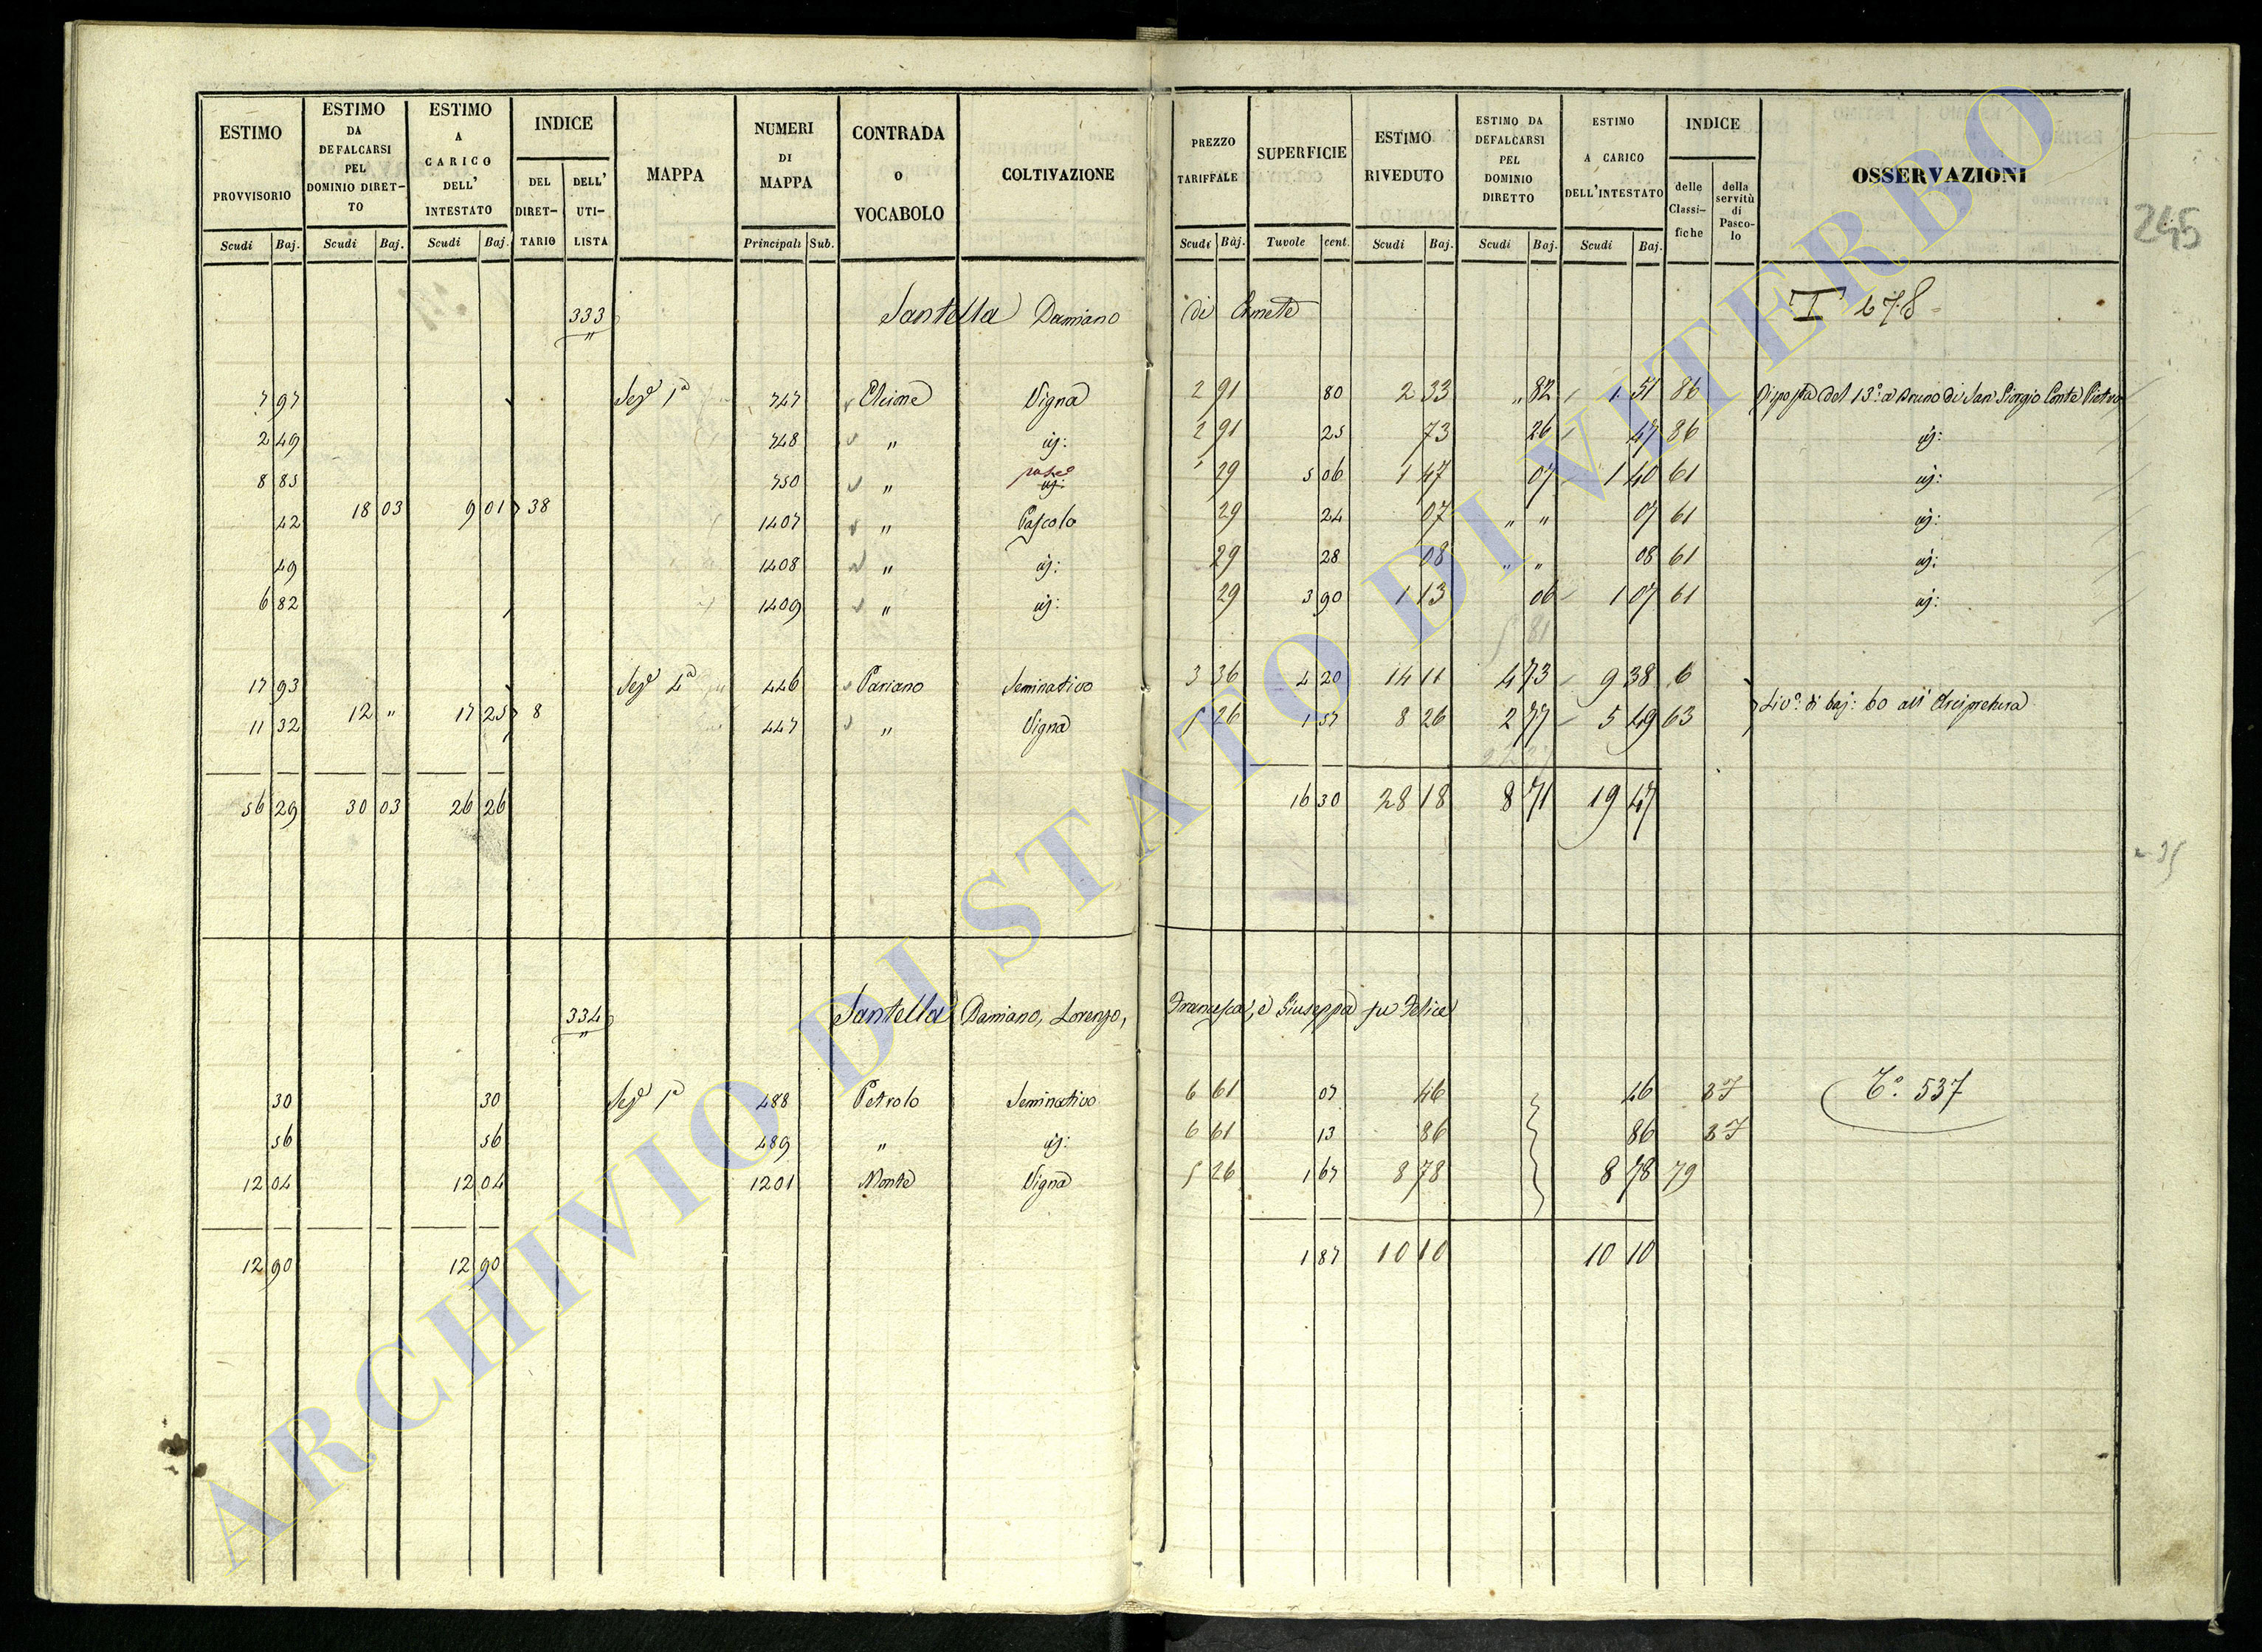 ESTIMO PROVVISORIO Scudi Baj. | ESTIMO DA DEFALCARSI PEL DOMINIO DIRETTO Scudi Baj. | ESTIMO A CARICO DELL' INTESTATO Scudi Baj. | INDICE DEL DIRETTARIO | DELL' UTILISTA | MAPPA | NUMERI DI MAPPA Principali Sub. | CONTRADA O VOCABOLO | COLTIVAZIONE | PREZZO TARIFFALE Scudi Baj. | SUPERFICIE Tavole cent. | ESTIMO RIVEDUTO Scudi Baj. | ESTIMO DA DEFALCARSI PEL DOMINIO DIRETTO Scudi Baj. | ESTIMO A CARICO DELL'INTESTATO Scudi Baj. | INDICE delle Classifiche | della servitù di Pascolo | OSSERVAZIONI
245
333 Santella Damiano di T 278
7 97 Sez.e 1a 747 Vigna 2 91 80 2 33 " 82 1 51 86 del 13° a Bruno di San Giorgio Conte
2 49 748 " id: 2 91 25 73 26 47 86 id:
8 85 750 " id: 29 5 06 1 47 07 1 40 61 id:
42 18 03 9 01 38 1407 " Pascolo 29 24 07 " " 07 61 id:
49 1408 " id: 29 28 08 " " 08 61 id:
6 82 1409 " id: 29 3 90 1 13 06 1 07 61 id:
17 93 Sez.e 4a 446 Pariano Seminativo 3 36 4 20 14 11 4 73 9 38 6
11 32 12 " 17 25 8 447 " Vigna 5 26 1 57 8 26 2 77 5 49 63 Liv.o di baj: 60 all' Arcipretura
56 29 30 03 26 26 16 30 28 18 8 71 19 47
334 Santella Damiano, Lorenzo, Francesca, e Giuseppa fu Felice
30 30 Sez.e 1a 488 Petrolo Seminativo 6 61 07 46 46 37 T.° 537
56 56 489 " id: 6 61 13 86 86 37
12 04 12 04 1201 Monte Vigna 5 26 1 67 8 78 8 78 79
12 90 12 90 1 87 10 10 10 10
ARCHIVIO DI STATO DI VITERBO